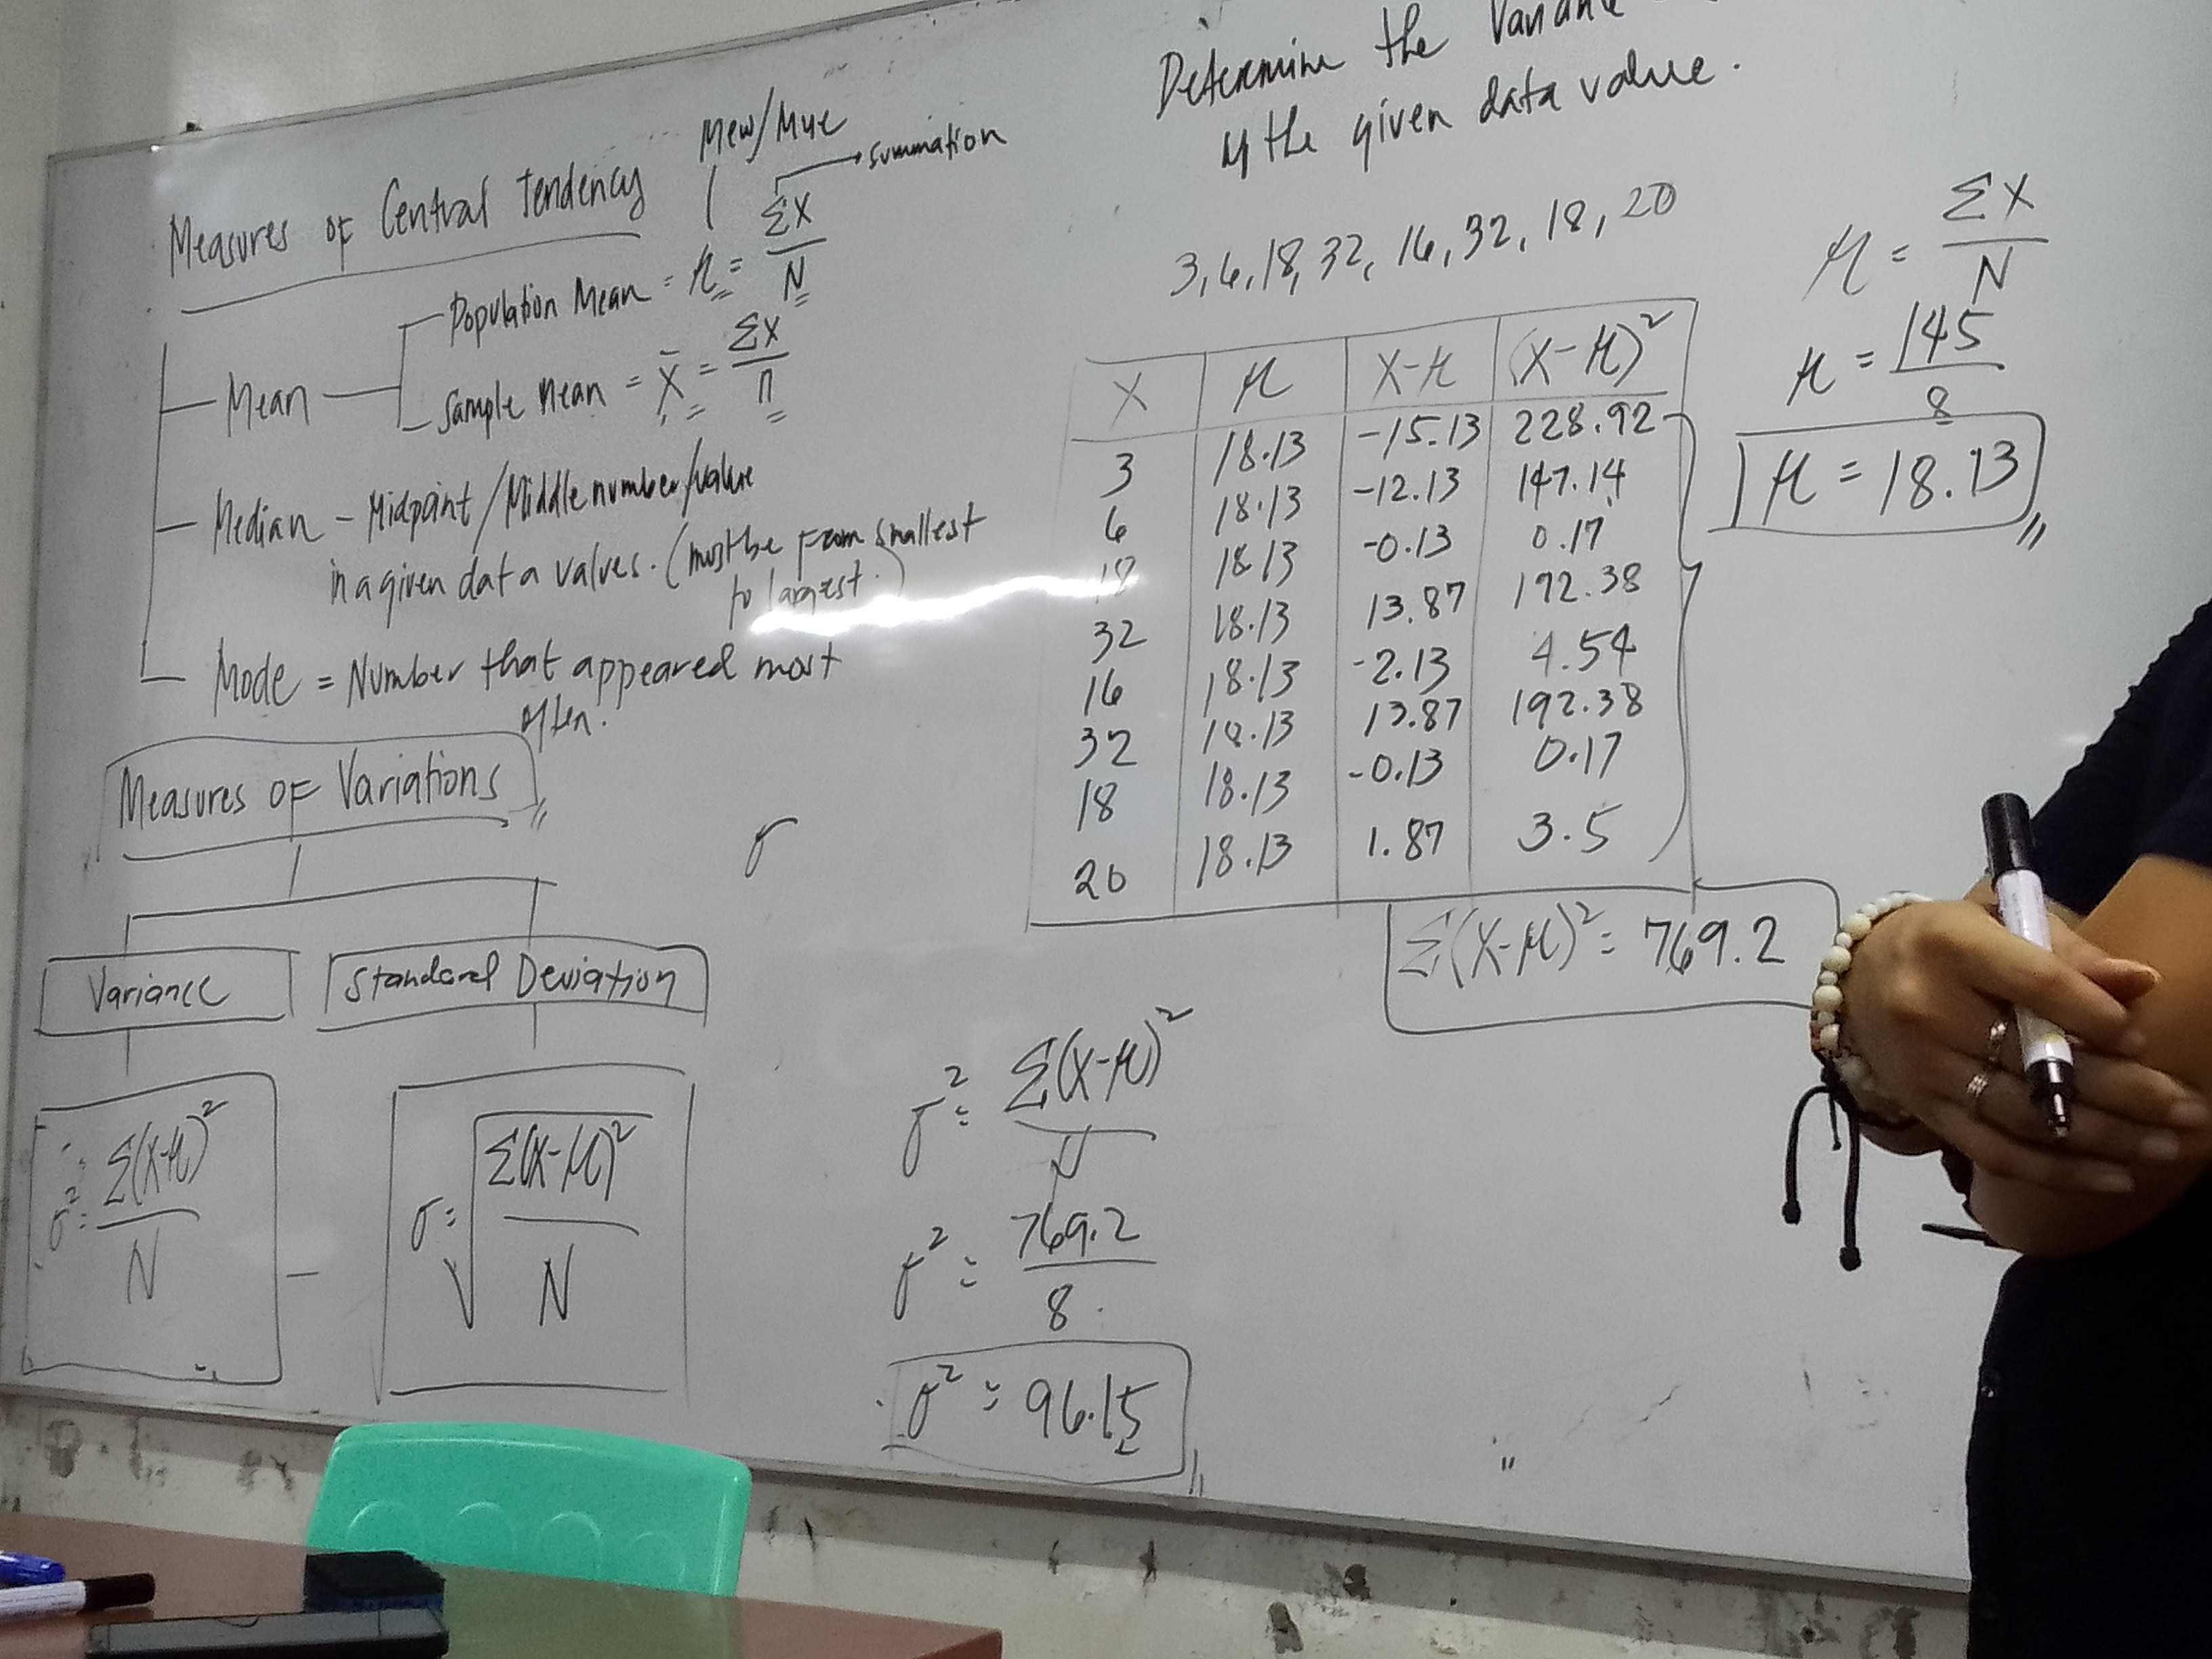 Measures of Central Tendency
Mew/Mue
summation
Mean
Population Mean = μ = ΣX / N
Sample Mean = x̄ = ΣX / n
Median - Midpoint/Middle number/value
in a given data values. (must be from smallest
to largest.)
Mode = Number that appeared most
often.
Measures of Variations
σ
Variance
Standard Deviation
σ² = Σ(X-μ)² / N
σ = √ Σ(X-μ)² / N
Determine the
of the given data value.
3, 6, 18, 32, 16, 32, 18, 20
X μ X-μ (X-μ)²
3 18.13 -15.13 228.92
6 18.13 -12.13 147.14
18 18.13 -0.13 0.17
32 18.13 13.87 192.38
16 18.13 -2.13 4.54
32 18.13 13.87 192.38
18 18.13 -0.13 0.17
20 18.13 1.87 3.5
Σ(X-μ)² = 769.2
μ = ΣX / N
μ = 145 / 8
μ = 18.13
σ² = Σ(X-μ)² / N
σ² = 769.2 / 8
σ² = 96.15